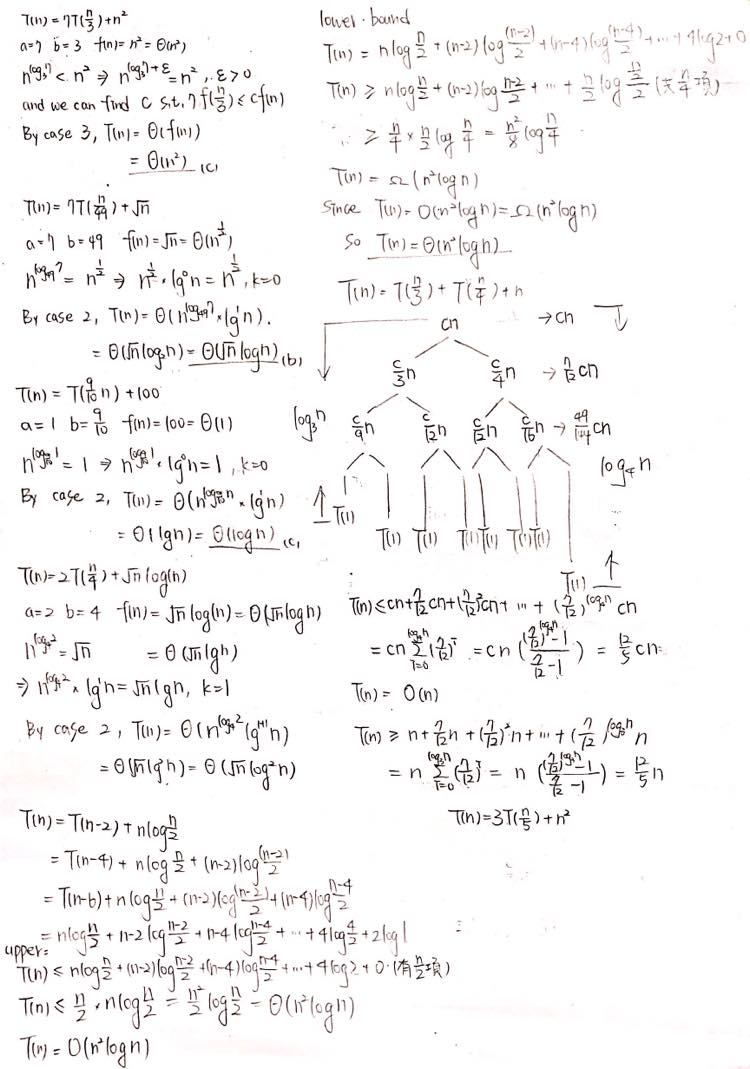 T(n) = 7T(n/3) + n²
a=7 b=3 f(n) = n² = Θ(n²)
n^(log₃7) < n² ⇒ n^(log₃7+ε) = n², ε>0
and we can find c s.t. 7f(n/3) ≤ cf(n)
By case 3, T(n) = Θ(f(n))
= Θ(n²) (c)
T(n) = 7T(n/49) + √n
a=7 b=49 f(n) = √n = Θ(n^(1/2))
n^(log₄₉7) = n^(1/2) ⇒ n^(1/2) × lg⁰n = n^(1/2), k=0
By case 2, T(n) = Θ(n^(log₄₉7) × lg¹n).
= Θ(√n log₂n) = Θ(√n logn) (b)
T(n) = T(9/10 n) + 100
a=1 b=9/10 f(n) = 100 = Θ(1)
n^(log_(9/10) 1) = 1 ⇒ n^(log_(9/10) 1) × lg⁰n = 1, k=0
By case 2, T(n) = Θ(n^(log_(9/10) n) × lg¹n)
= Θ(lgn) = Θ(logn) (c)
T(n) = 2T(n/4) + √n log(n)
a=2 b=4 f(n) = √n log(n) = Θ(√n logn)
n^(log₄2) = √n = Θ(√n lgn)
⇒ n^(log₄2) × lg¹n = √n lgn, k=1
By case 2, T(n) = Θ(n^(log₄2) lg^(1+1) n)
= Θ(√n lg²n) = Θ(√n log²n)
T(n) = T(n-2) + n log n/2
= T(n-4) + n log n/2 + (n-2) log (n-2)/2
= T(n-6) + n log n/2 + (n-2) log (n-2)/2 + (n-4) log n-4/2
= n log n/2 + n-2 log n-2/2 + n-4 log n-4/2 + ⋯ + 4 log 4/2 + 2 log 1
upper:
T(n) ≤ n log n/2 + (n-2) log n-2/2 + (n-4) log n-4/2 + ⋯ + 4 log 2 + 0. (有 n/2 項)
T(n) ≤ n/2 × n log n/2 = n²/2 log n/2 = Θ(n² logn)
T(n) = O(n² logn)
lower bound
T(n) = n log n/2 + (n-2) log (n-2)/2 + (n-4) log (n-4)/2 + ⋯ + 4 log 2 + 0
T(n) ≥ n log n/2 + (n-2) log n-2/2 + ⋯ + n/2 log (n/2)/2 (共 n/4 項)
≥ n/4 × n/2 log n/4 = n²/8 log n/4
T(n) = Ω(n² logn)
Since T(n) = O(n² logn) = Ω(n² logn)
So T(n) = Θ(n² logn)
T(n) = T(n/3) + T(n/4) + n
cn → cn
c/3 n c/4 n → 7/12 cn
log₃n c/9 n c/12 n c/12 n c/16 n → 49/144 cn
log₄n
T(1)
T(1) T(1) T(1) T(1) T(1) T(1)
T(1)
T(n) ≤ cn + 7/12 cn + (7/12)² cn + ⋯ + (7/12)^(log₃n) cn
= cn Σ_(i=0)^(log₃n) (7/12)^i = cn (((7/12)^(log₃n) - 1)/(7/12 - 1)) = 12/5 cn
T(n) = O(n)
T(n) ≥ n + 7/12 n + (7/12)² n + ⋯ + (7/12)^(log₃n) n
= n Σ_(i=0)^(log₃n) (7/12)^i = n (((7/12)^(log₃n) - 1)/(7/12 - 1)) = 12/5 n
T(n) = 3T(n/5) + n²